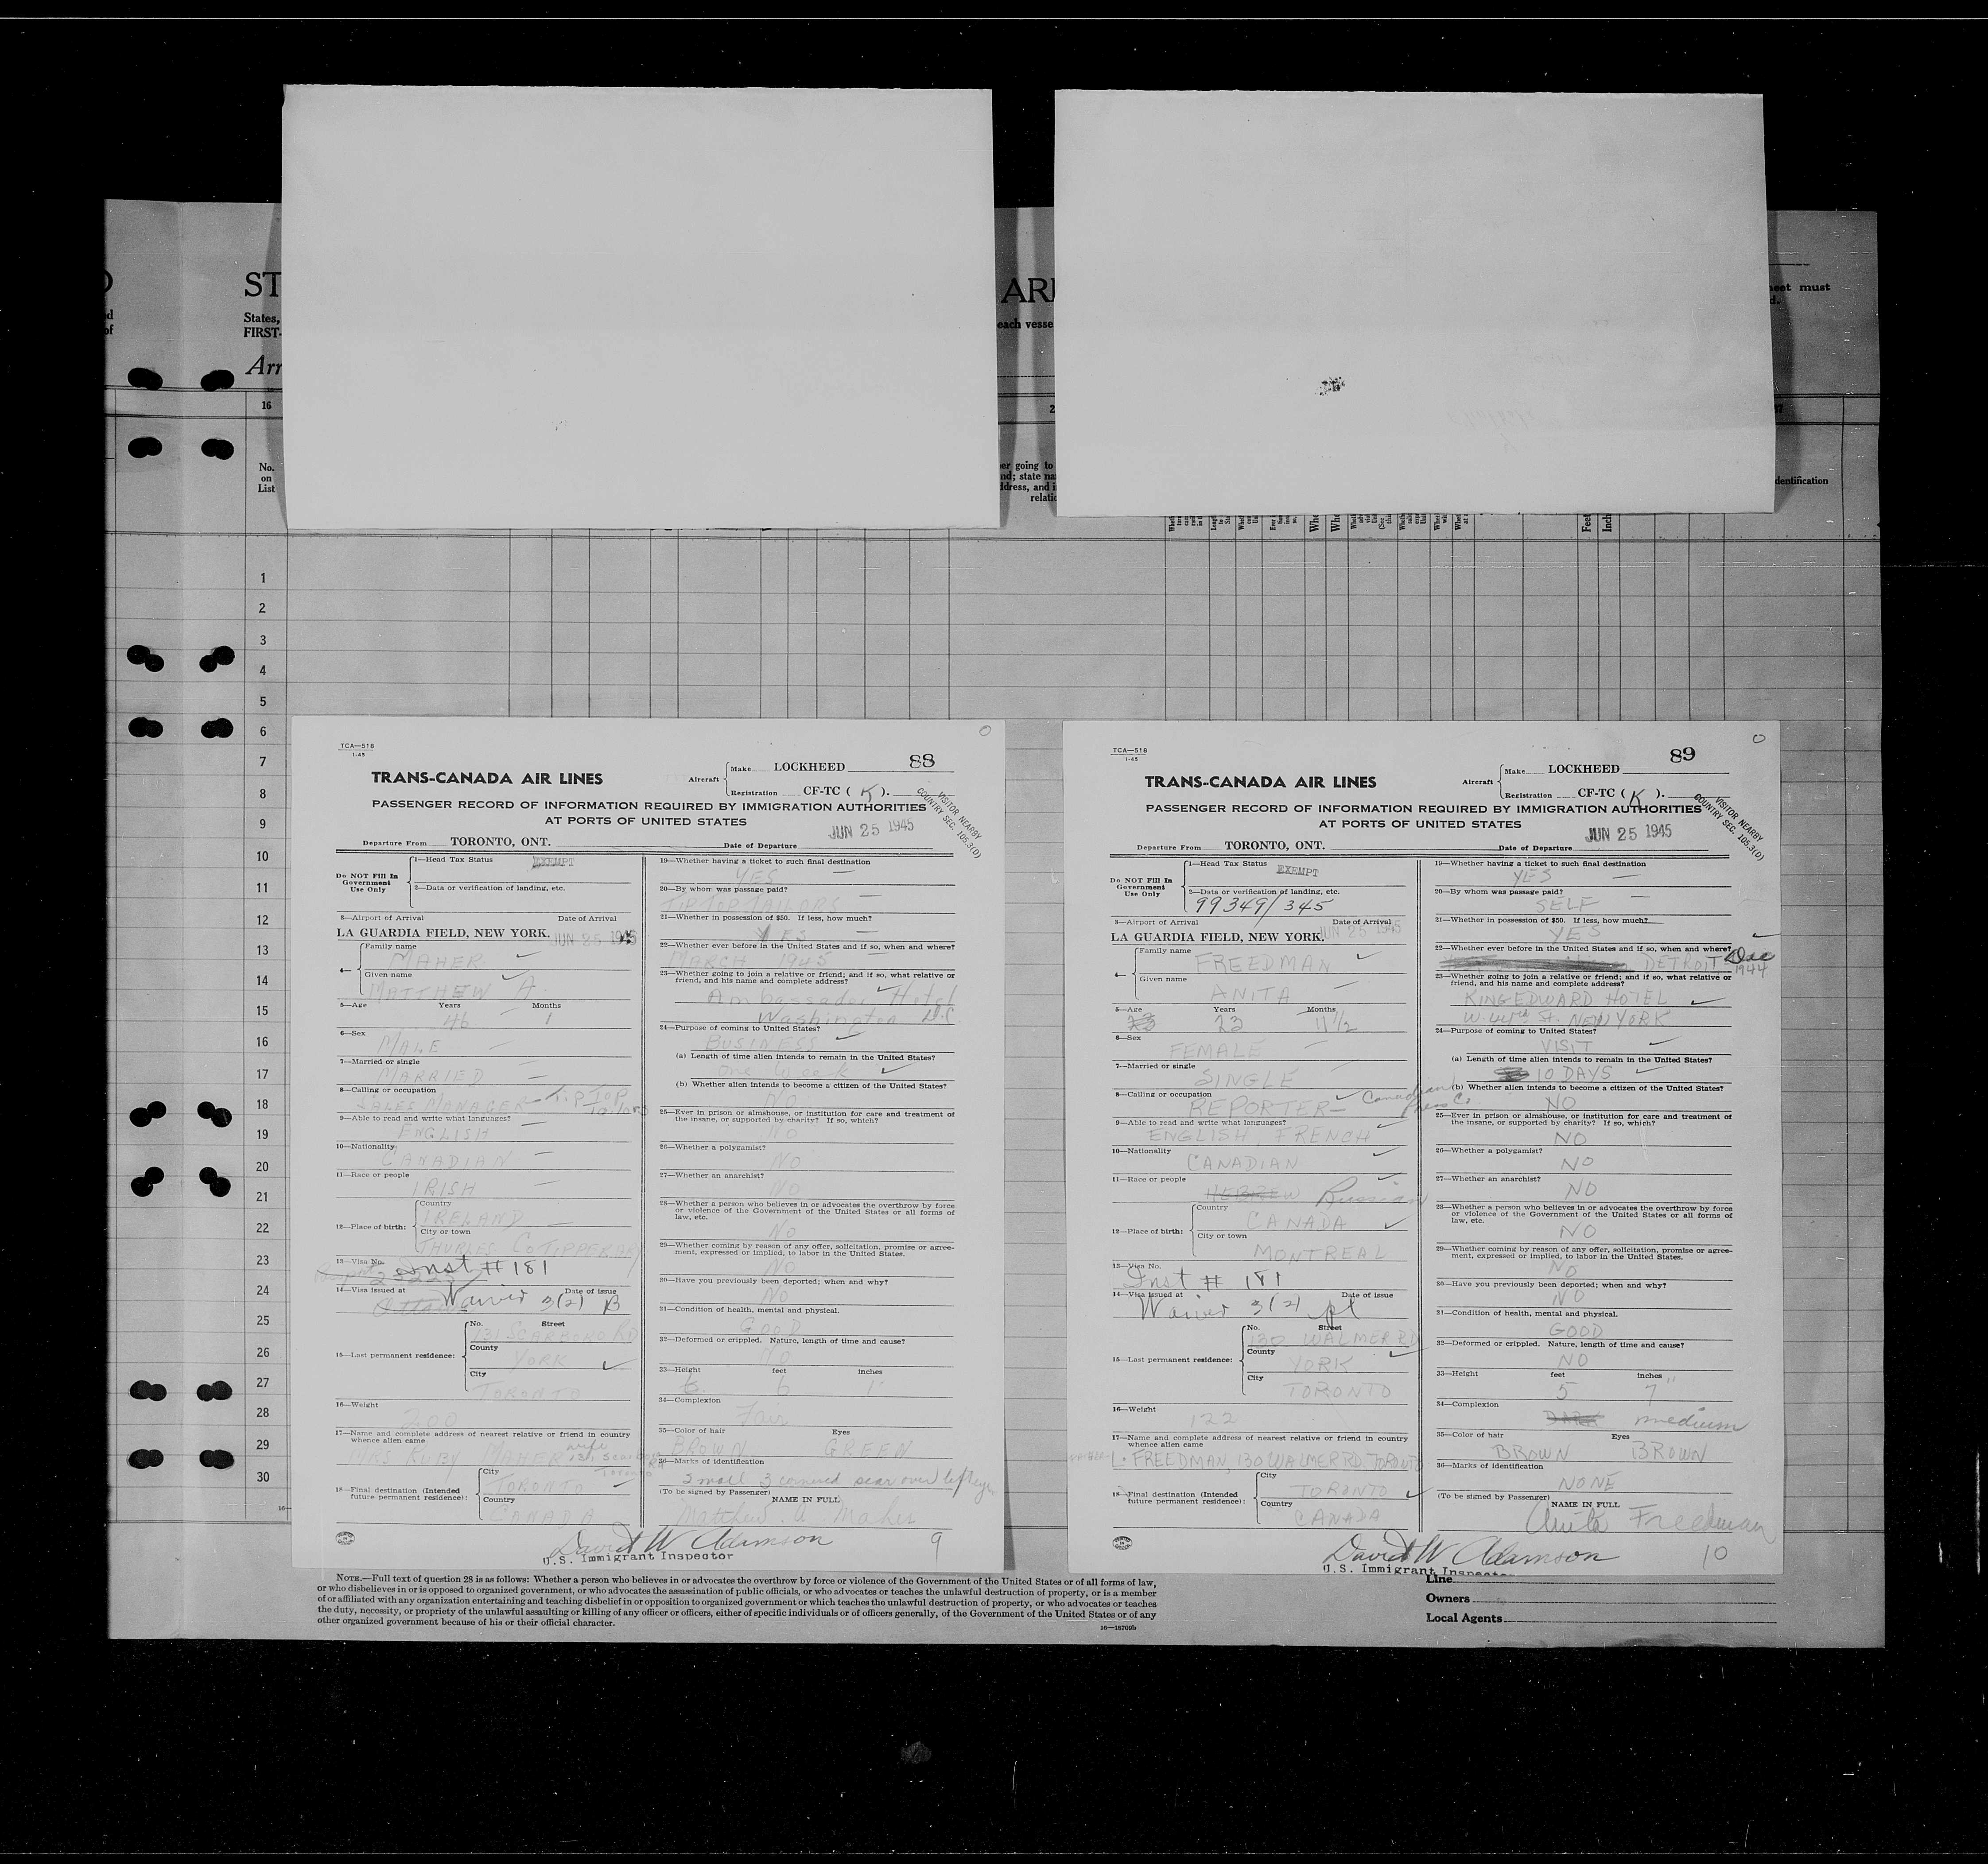 ST
States,
FIRST-
Arr
ARI
each vesse
eet must
d.
16
27
No.
on
List
er going to
nd; state na
ddress, and i
relatio
dentification
Feet
Inch
1
2
3
4
5
6
7
8
9
10
11
12
13
14
15
16
17
18
19
20
21
22
23
24
25
26
27
28
29
30
TCA—518
1-45
88
TRANS-CANADA AIR LINES
Aircraft Make LOCKHEED
Registration CF-TC ( K ).
PASSENGER RECORD OF INFORMATION REQUIRED BY IMMIGRATION AUTHORITIES
AT PORTS OF UNITED STATES
VISITOR NEARBY
COUNTRY SEC. 105.3(D)
JUN 25 1945
Departure From TORONTO, ONT. Date of Departure
Do NOT Fill In Government Use Only
1—Head Tax Status EXEMPT
2—Data or verification of landing, etc.
3—Airport of Arrival Date of Arrival
LA GUARDIA FIELD, NEW YORK. JUN 25 1945
4— Family name
MAHER
Given name
MATTHEW A.
5—Age Years Months
46 1
6—Sex
MALE
7—Married or single
MARRIED
8—Calling or occupation
SALES MANAGER — TIP TOP Tailors
9—Able to read and write what languages?
ENGLISH
10—Nationality
CANADIAN
11—Race or people
IRISH
12—Place of birth: Country
IRELAND
City or town
THURLES CO TIPPERARY
13—Visa No.
Inst # 181
14—Visa issued at Date of issue
Ottawa Waiver 3(2) B
15—Last permanent residence: No. Street
131 SCARBORO RD
County
YORK
City
TORONTO
16—Weight
200
17—Name and complete address of nearest relative or friend in country
whence alien came
MRS RUBY MAHER wife 131 Scarboro Rd Toronto
18—Final destination (Intended
future permanent residence): City
TORONTO
Country
CANADA
19—Whether having a ticket to such final destination
YES
20—By whom was passage paid?
TIP TOP TAILORS
21—Whether in possession of $50. If less, how much?
YES
22—Whether ever before in the United States and if so, when and where?
MARCH 1945
23—Whether going to join a relative or friend; and if so, what relative or
friend, and his name and complete address?
Ambassador Hotel
Washington D.C.
24—Purpose of coming to United States?
BUSINESS
(a) Length of time alien intends to remain in the United States?
One Week
(b) Whether alien intends to become a citizen of the United States?
NO
25—Ever in prison or almshouse, or institution for care and treatment of
the insane, or supported by charity? If so, which?
NO
26—Whether a polygamist?
NO
27—Whether an anarchist?
NO
28—Whether a person who believes in or advocates the overthrow by force
or violence of the Government of the United States or all forms of
law, etc.
NO
29—Whether coming by reason of any offer, solicitation, promise or agree-
ment, expressed or implied, to labor in the United States.
NO
30—Have you previously been deported; when and why?
NO
31—Condition of health, mental and physical.
GOOD
32—Deformed or crippled. Nature, length of time and cause?
NO
33—Height feet inches
6. 6 1
34—Complexion
Fair
35—Color of hair Eyes
BROWN GREEN
36—Marks of identification
Small 3 cornered scar over left eye
(To be signed by Passenger) NAME IN FULL
Matthew. A Maher
David W Adamson
U.S. Immigrant Inspector
9
TCA—518
1-45
89
TRANS-CANADA AIR LINES
Aircraft Make LOCKHEED
Registration CF-TC ( K ).
PASSENGER RECORD OF INFORMATION REQUIRED BY IMMIGRATION AUTHORITIES
AT PORTS OF UNITED STATES
VISITOR NEARBY
COUNTRY SEC. 105.3(D)
JUN 25 1945
Departure From TORONTO, ONT. Date of Departure
Do NOT Fill In Government Use Only
1—Head Tax Status EXEMPT
2—Data or verification of landing, etc.
99349/345
3—Airport of Arrival Date of Arrival
LA GUARDIA FIELD, NEW YORK. JUN 25 1945
4— Family name
FREEDMAN
Given name
ANITA
5—Age Years Months
23 23 11 1/2
6—Sex
FEMALE
7—Married or single
SINGLE
8—Calling or occupation
REPORTER — Canadian Press Co.
9—Able to read and write what languages?
ENGLISH, FRENCH
10—Nationality
CANADIAN
11—Race or people
HEBREW Russian
12—Place of birth: Country
CANADA
City or town
MONTREAL
13—Visa No.
Inst # 181
14—Visa issued at Date of issue
Waiver 3(2) pt
15—Last permanent residence: No. Street
130 WALMER RD
County
YORK
City
TORONTO
16—Weight
122
17—Name and complete address of nearest relative or friend in country
whence alien came
L. FREEDMAN, 130 WALMER RD. TORONTO
18—Final destination (Intended
future permanent residence): City
TORONTO
Country
CANADA
19—Whether having a ticket to such final destination
YES
20—By whom was passage paid?
SELF
21—Whether in possession of $50. If less, how much?
YES
22—Whether ever before in the United States and if so, when and where?
DETROIT Dec 1944
23—Whether going to join a relative or friend; and if so, what relative or
friend, and his name and complete address?
KING EDWARD HOTEL
W. 44th St. NEW YORK
24—Purpose of coming to United States?
VISIT
(a) Length of time alien intends to remain in the United States?
10 DAYS
(b) Whether alien intends to become a citizen of the United States?
NO
25—Ever in prison or almshouse, or institution for care and treatment of
the insane, or supported by charity? If so, which?
NO
26—Whether a polygamist?
NO
27—Whether an anarchist?
NO
28—Whether a person who believes in or advocates the overthrow by force
or violence of the Government of the United States or all forms of
law, etc.
NO
29—Whether coming by reason of any offer, solicitation, promise or agree-
ment, expressed or implied, to labor in the United States.
NO
30—Have you previously been deported; when and why?
NO
31—Condition of health, mental and physical.
GOOD
32—Deformed or crippled. Nature, length of time and cause?
NO
33—Height feet inches
5 7"
34—Complexion
DARK medium
35—Color of hair Eyes
BROWN BROWN
36—Marks of identification
NONE
(To be signed by Passenger) NAME IN FULL
Anita Freedman
David W Adamson
U.S. Immigrant Inspector
10
NOTE.—Full text of question 28 is as follows: Whether a person who believes in or advocates the overthrow by force or violence of the Government of the United States or of all forms of law,
or who disbelieves in or is opposed to organized government, or who advocates the assassination of public officials, or who advocates or teaches the unlawful destruction of property, or is a member
of or affiliated with any organization entertaining and teaching disbelief in or opposition to organized government or which teaches the unlawful destruction of property, or who advocates or teaches
the duty, necessity, or propriety of the unlawful assaulting or killing of any officer or officers, either of specific individuals or of officers generally, of the Government of the United States or of any
other organized government because of his or their official character.
16—18709b
Line
Owners
Local Agents